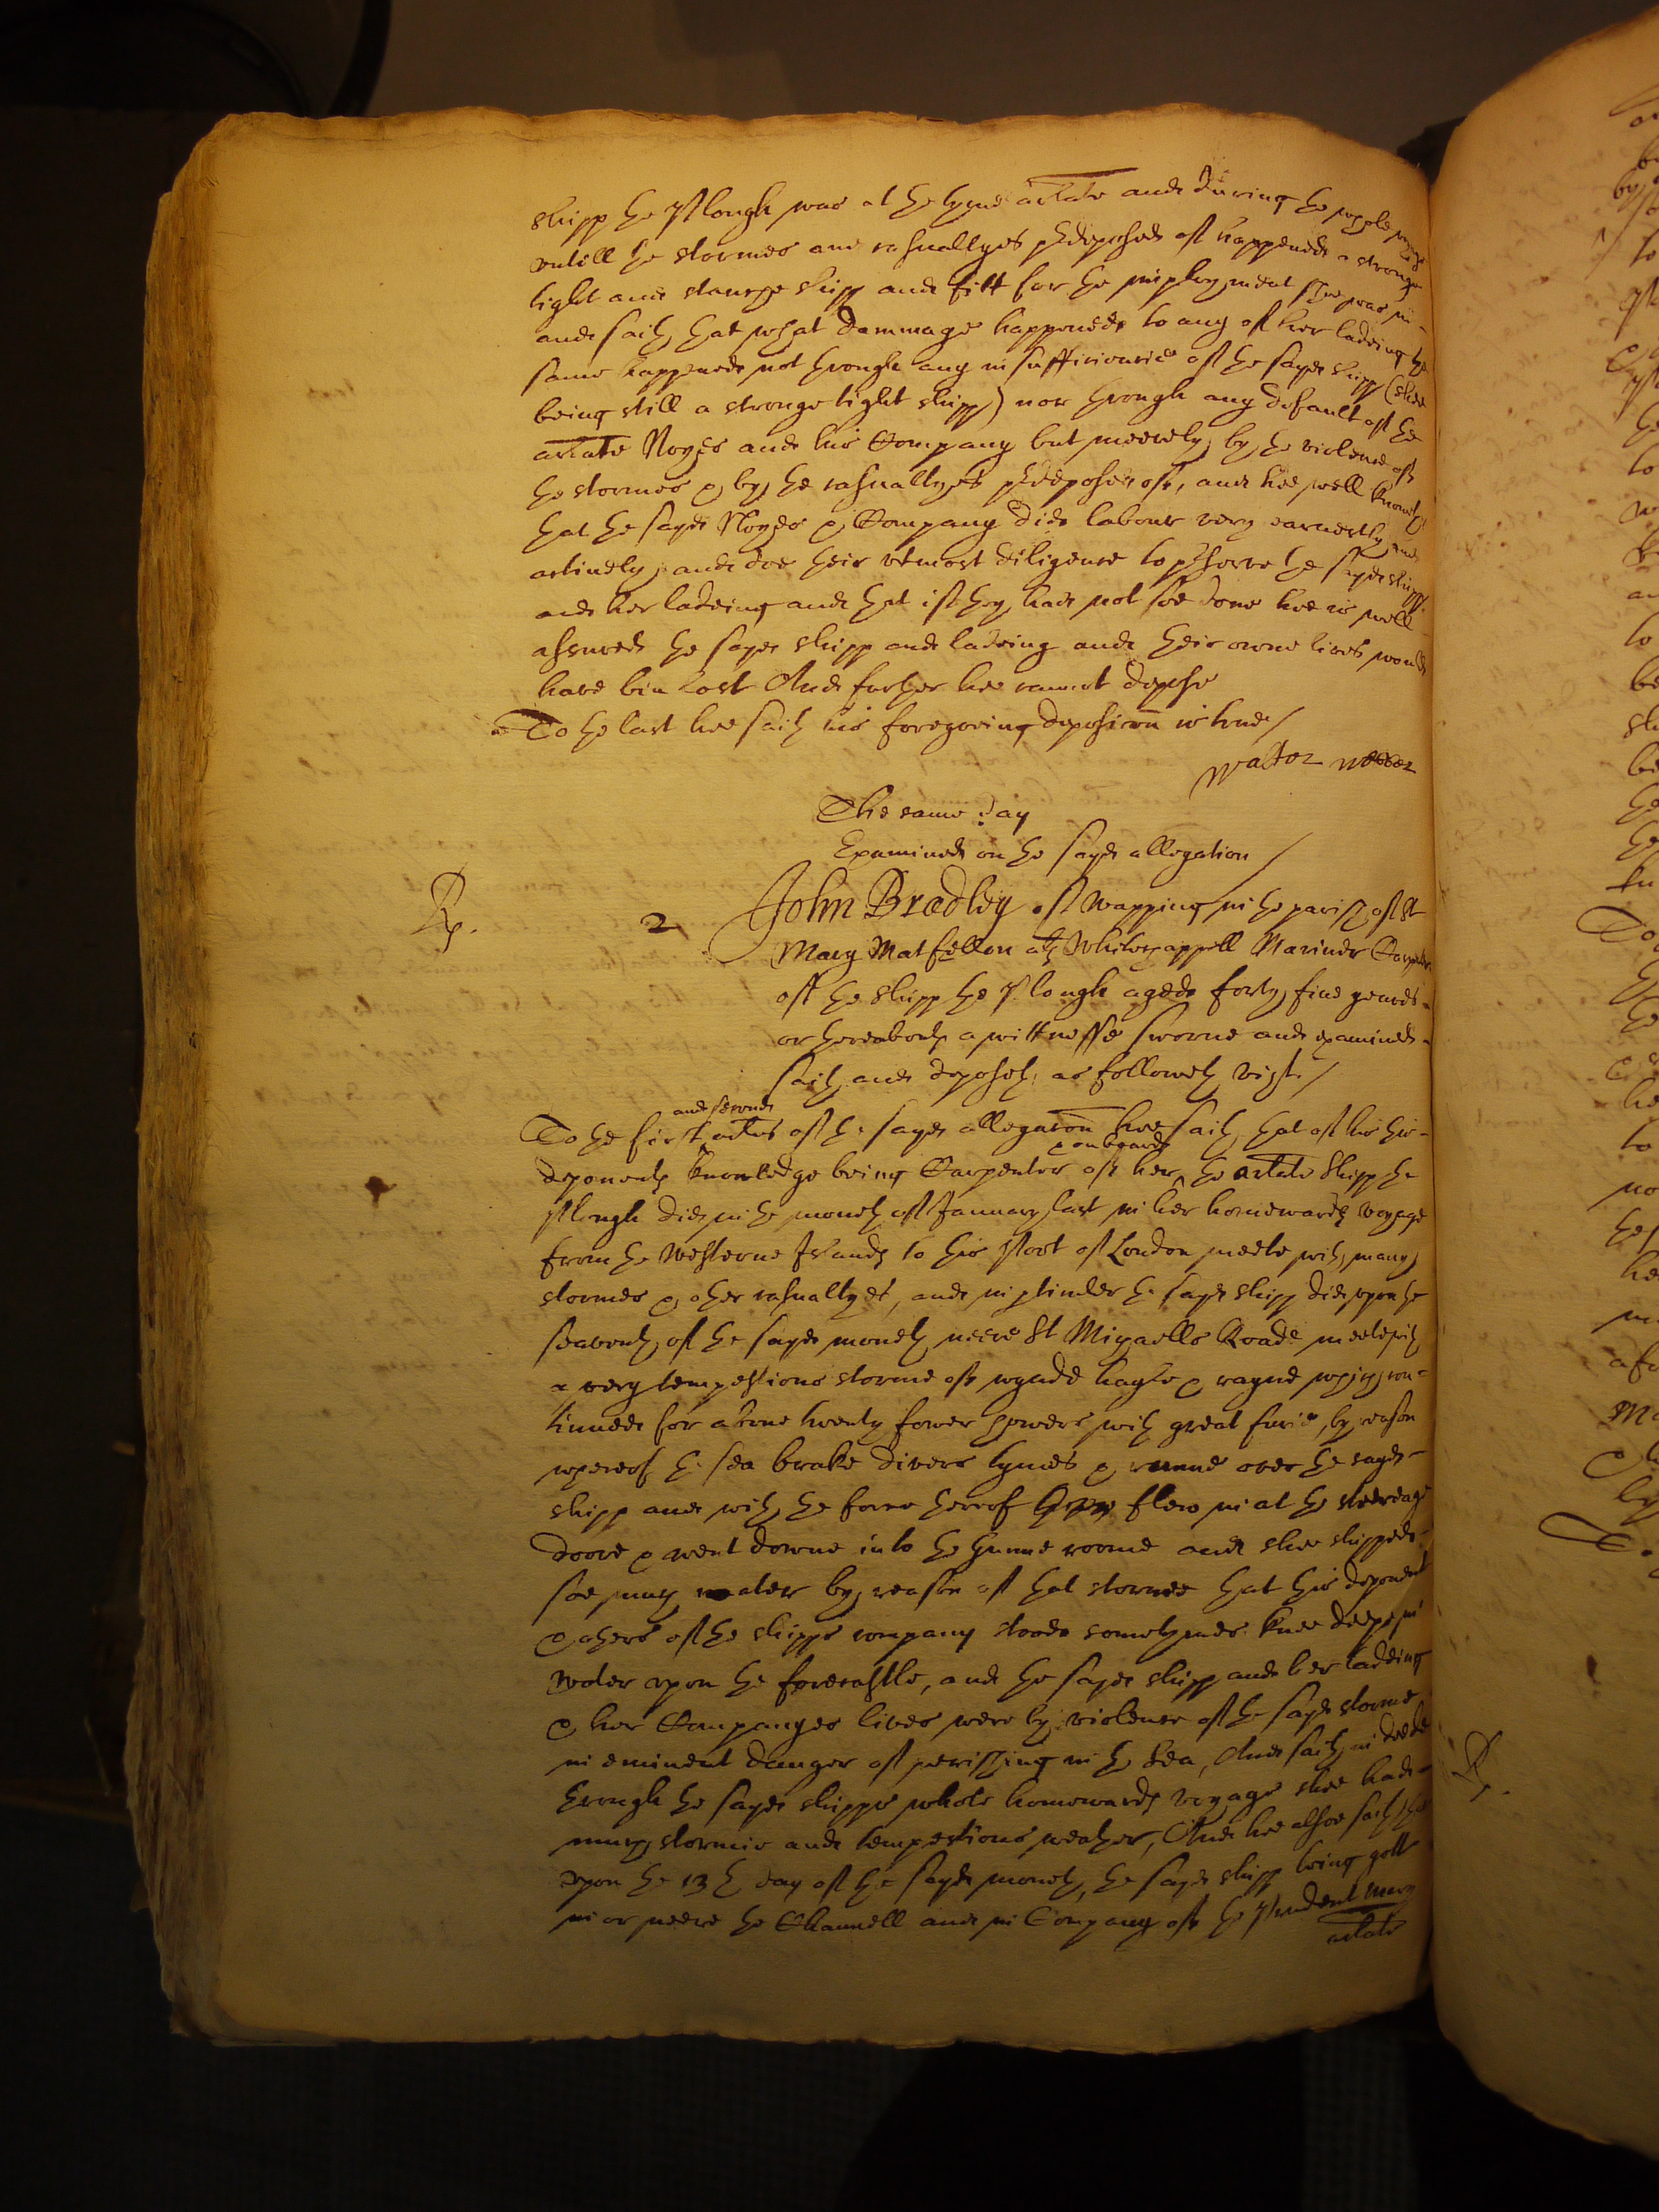 shipp the Plough was at the tyme arlate and during the whole voyage
untill the stormes and casuallyes predeposed of happened a stronge
tight and staunche shipp and fitt for the imployment shee was in
and saith that what dammage happened to any of her ladeing the
same happened not through any insufficiencie of the sayd shipp (shee
being still a stronge tight shipp) nor through any default of the
arlate Noyes and his Company but meerely by the violence of
the stormes & by the casuallyes predeposed of, and hee well knoweth
that the sayd Noyes & Company did labour very earnestly and
actively, and doe their utmost diligence to preserve the sayd shipp
and her ladeing and that if they had not soe done hee is well
assured the sayd shipp and ladeing and their owne lives would
have bin lost And further hee cannot depose
To the last hee saith his foregoeing deposicon is true /
The same day
Examined on the sayd allegation /
Rp. 2 John Bradley of Wapping in the parish of St
Mary Matfellon als Whitechappell Mariner Carpenter
of the shipp the Plough aged forty five yeares
or thereabouts a wittnesse sworne and examined
saith and deposeth as followeth vizt. /
and second
To the first artes of the sayd allegacon hee saith that of his this
& on board
deponents knowledge being Carpenter of her the arlate shipp the
Plough did in the moneth of January last in her homewards voyage
from the Westerne Islands to this Port of London meete with many
stormes & other casuallyes, and in perticuler the sayd shipp did upon the
seaventh of the sayd moneth neere St Michaells Roade meete with
a very tempestious storme of wynde hayle & rayne which con-
tinued for above twenty fower howers with great furie, by reason
whereof the sea brake divers tymes & runne over the sayd
shipp and with the force thereof flew in at the steeredge
doore & went downe into the Gunne roome and shee shipped
soe much water by reason of that storme that this deponent
& others of the shipps company stood sometymes knee deepe in
water upon the forecastle, and the sayd shipp and her ladeing
& her Companyes lives were by violence of the sayd storme
in eminent danger of perishing in the Sea, And saith in deede
through the sayd shipps whole homewards voyage shee had
much stormie and tempestious weather, And hee alsoe saith that
upon the 13th day of the sayd moneth, the sayd shipp being gott
in or neere the Channell and in Company of the Prudent Mary
arlate